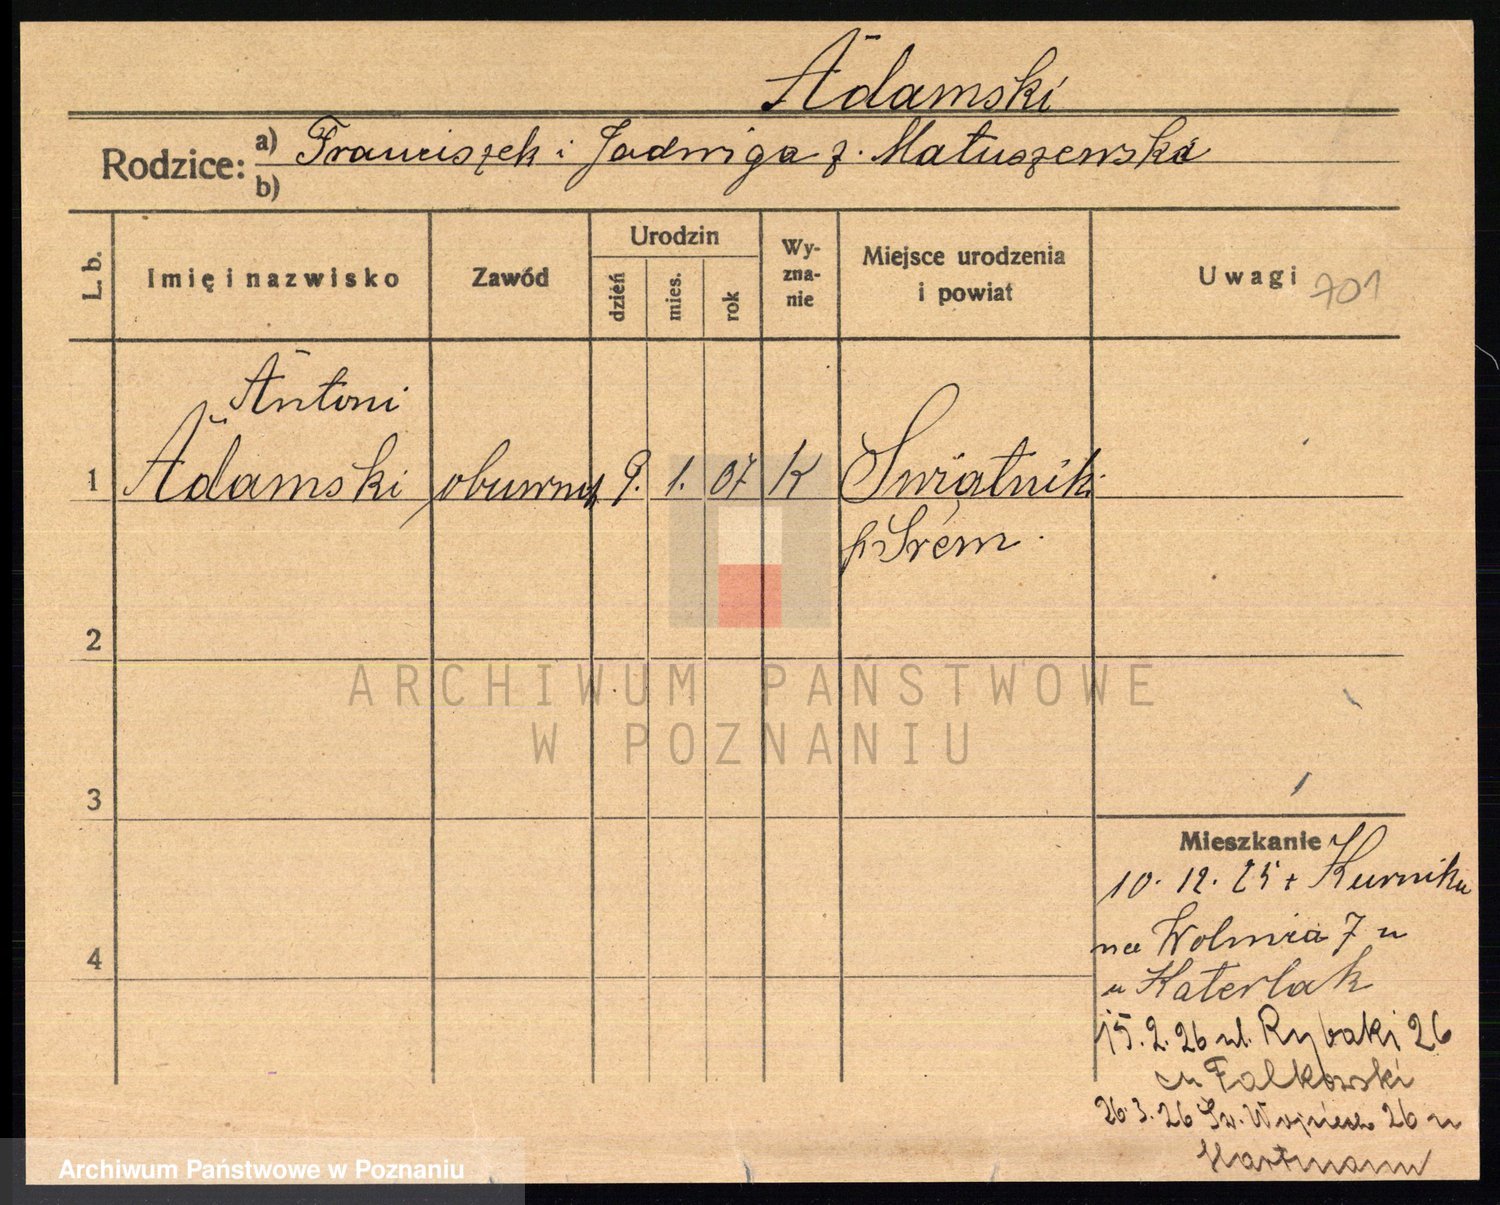 Adamski
Rodzice: a) Franciszek i Jadwiga z. Matuszewska
b)
L. b.
Imię i nazwisko
Zawód
Urodzin
dzień
mies.
rok
Wy-
zna-
nie
Miejsce urodzenia
i powiat
Uwagi 701
Antoni
1 Adamski obuwnik 9. 1. 07 K Świątniki
p Śrem.
2
ARCHIWUM PAŃSTWOWE
W POZNANIU
3
Mieszkanie
10. 12. 25 z Kurnika
na Wolnica 7 u
u Katerlak
15. 2. 26 ul. Rybaki 26
u Falkowski
26. 3. 26 Św. Wojciech 26 u
Hartmann
4
Archiwum Państwowe w Poznaniu